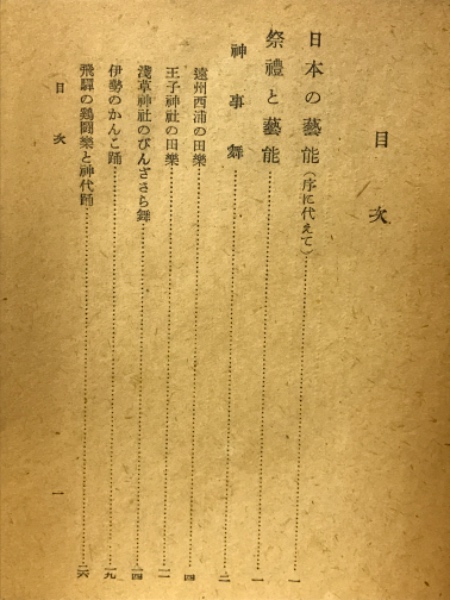 目次
日本の藝能（序に代えて）……一
祭禮と藝能……一
神事舞……二
遠州西浦の田樂……四
王子神社の田樂……
淺草神社のびんざさら舞……一四
伊勢のかんこ踊……一九
飛驒の鷄鬪樂と神代踊……
目次
一